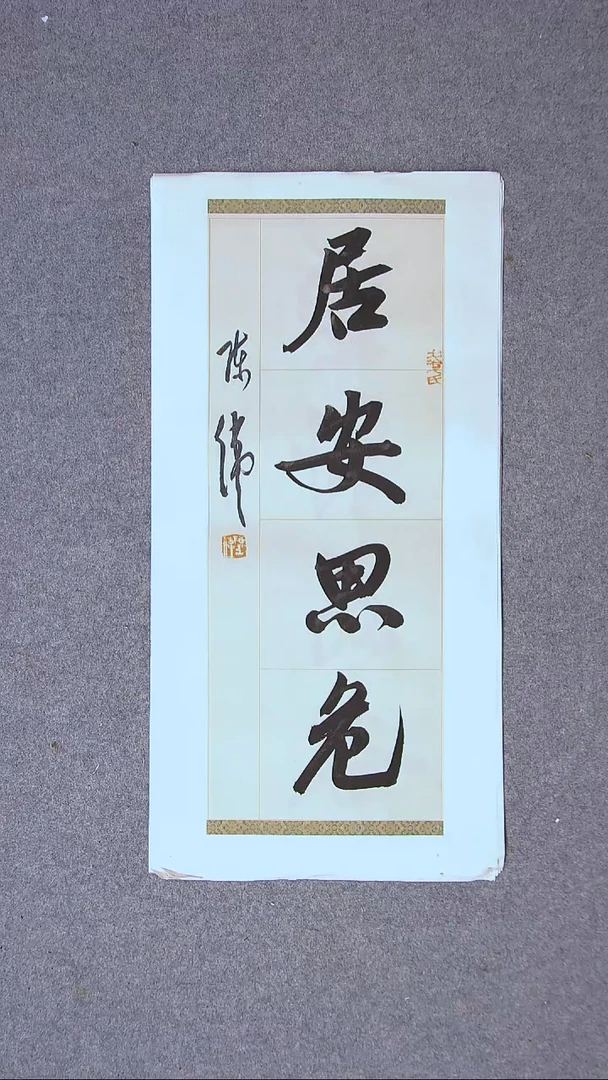 居安思危
陈伟